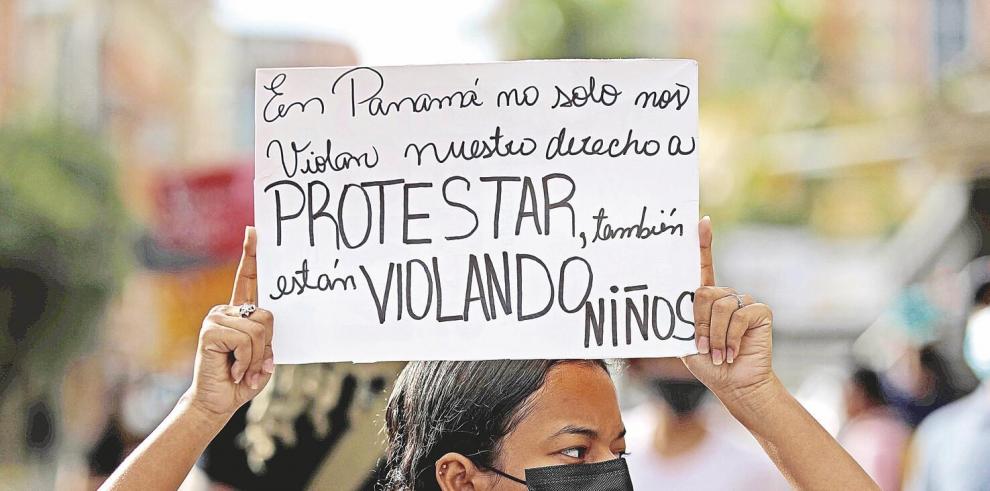 En Panamá no solo nos
Violan nuestro derecho a
PROTESTAR, también
están VIOLANDO NIÑOS